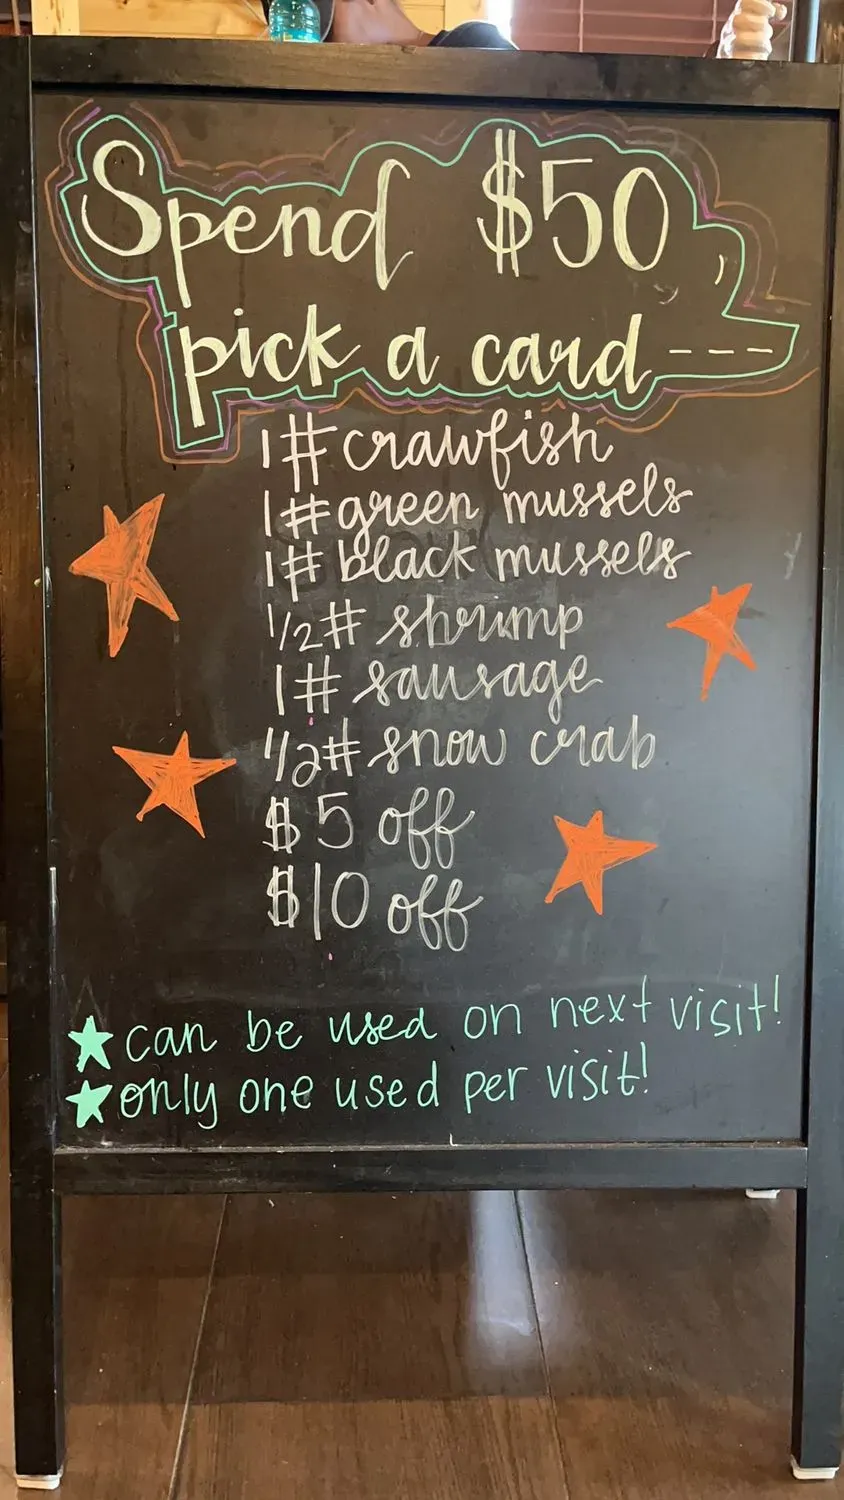 Spend $50
pick a card ---
1# crawfish
1# green mussels
1# black mussels
1/2# shrump
1# sausage
1/2# snow crab
$5 off
$10 off
★ can be used on next visit!
★ only one used per visit!